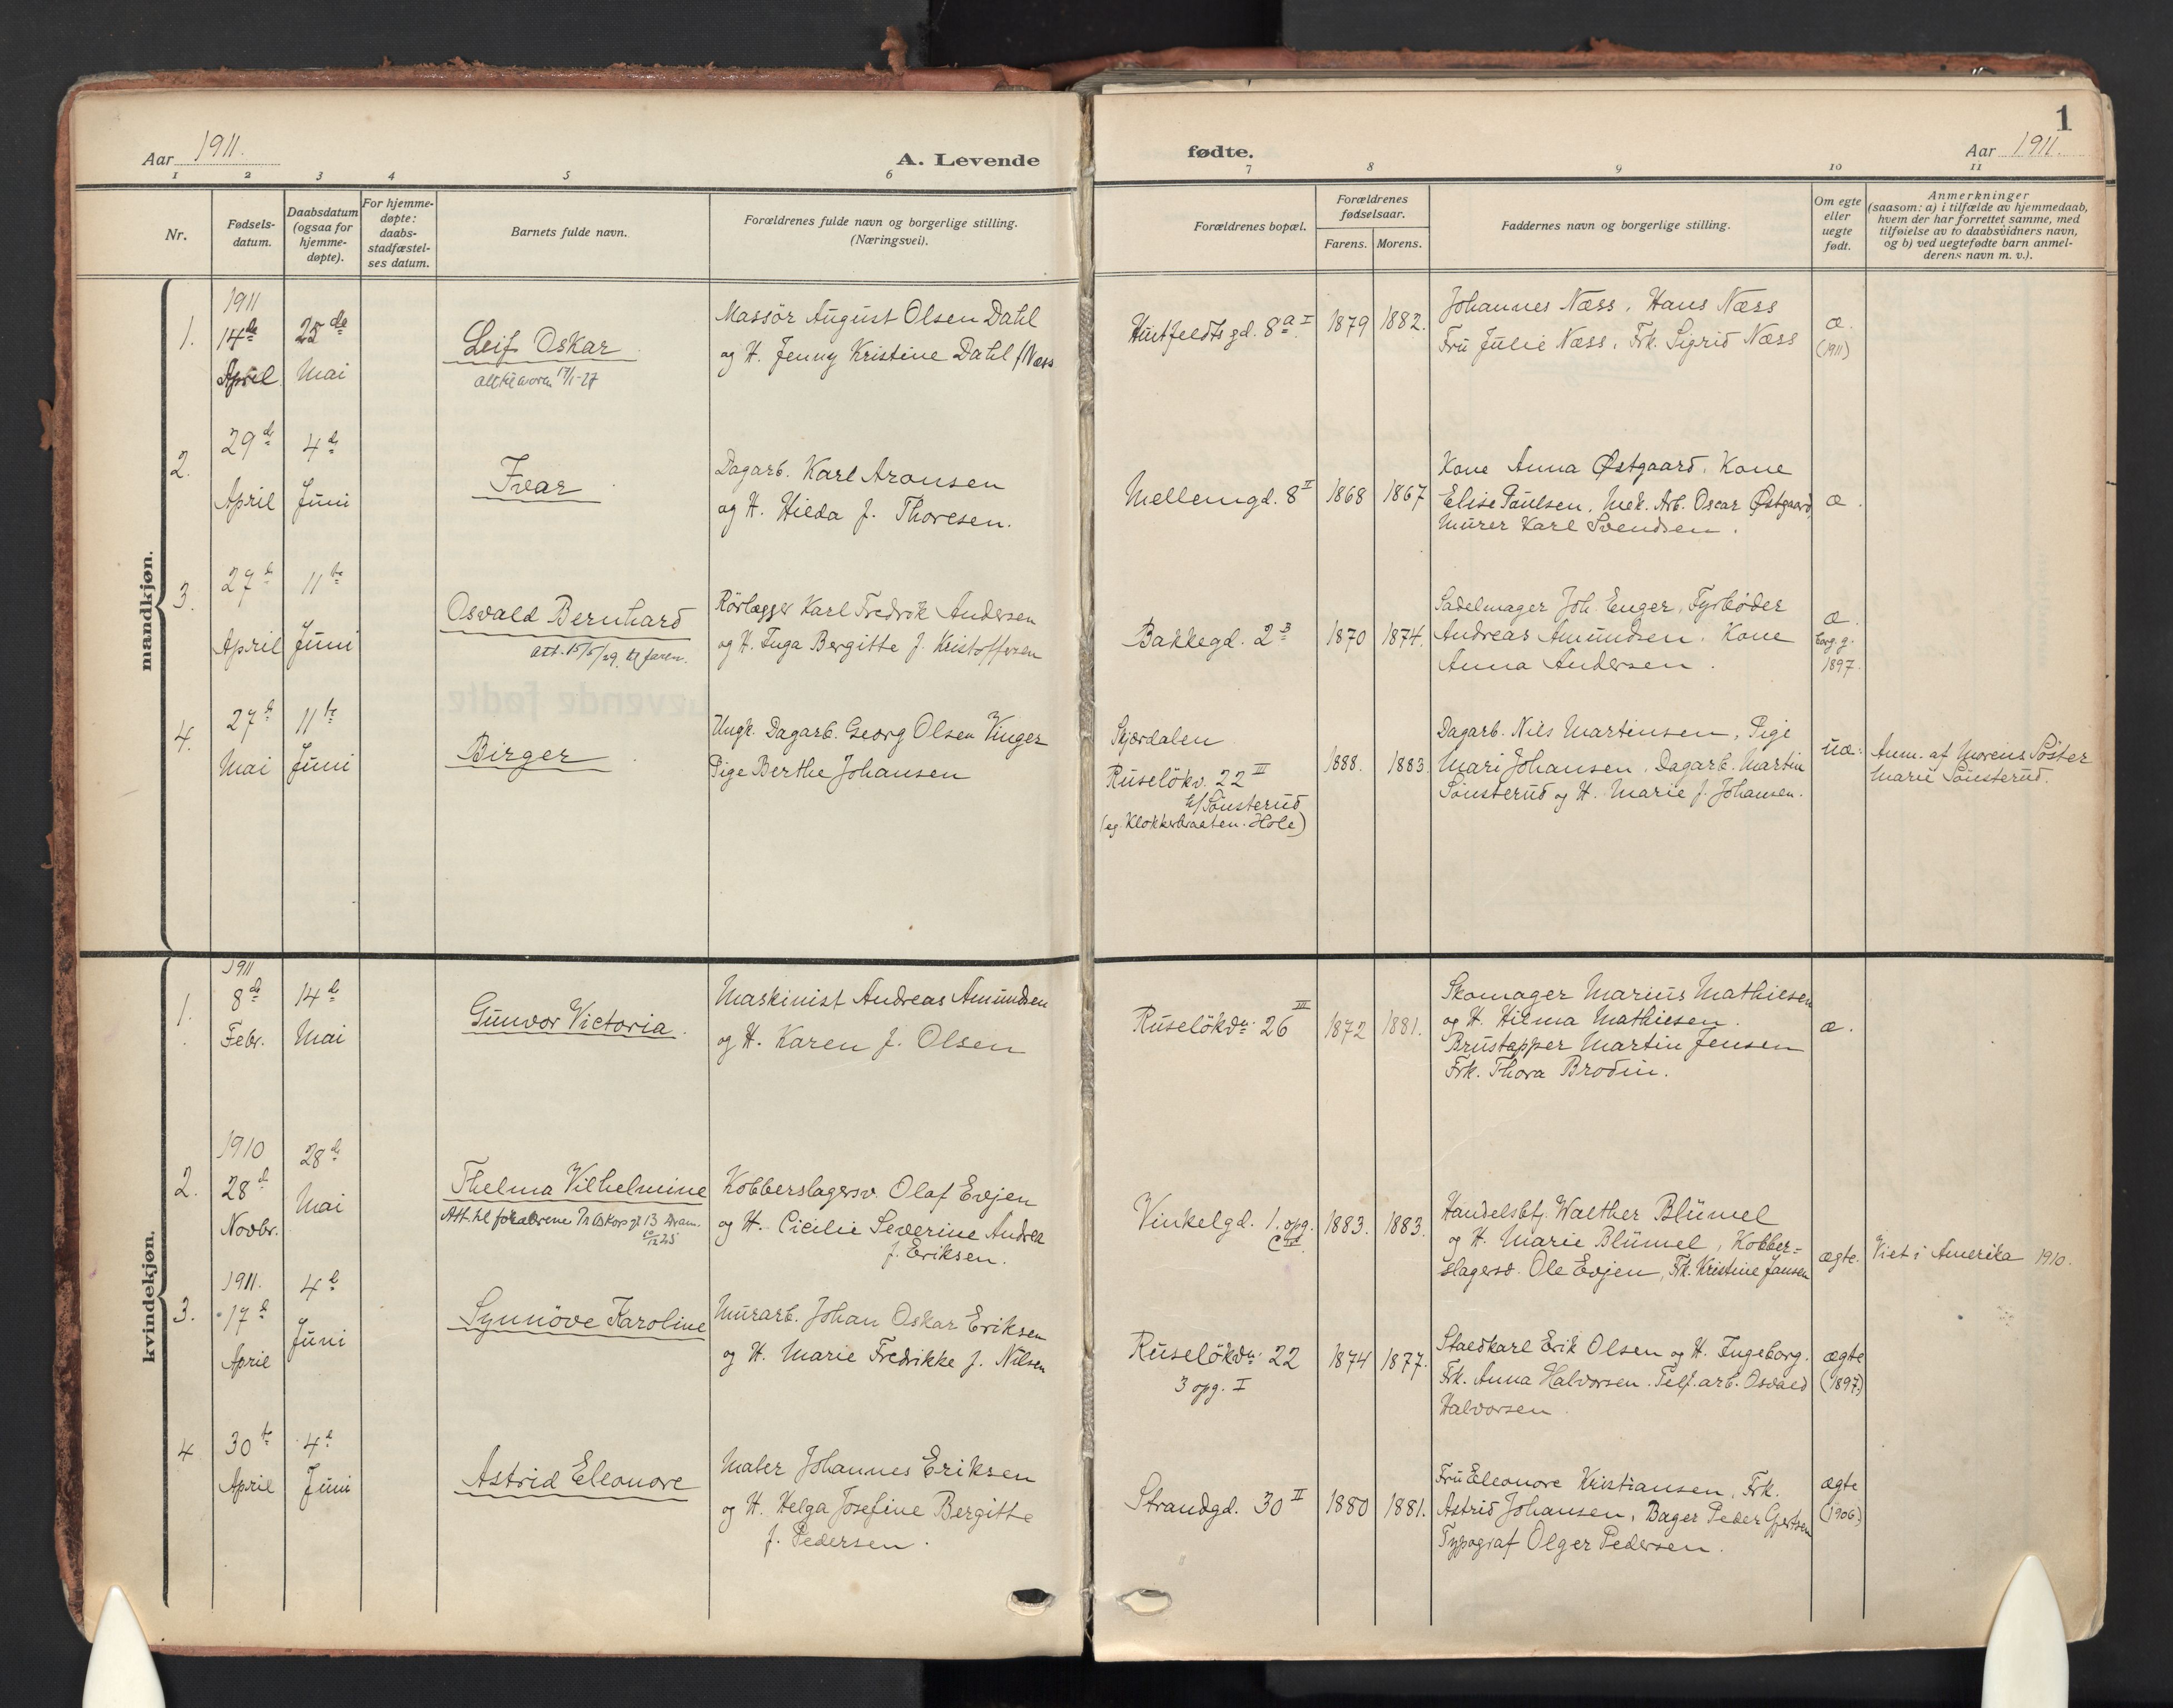 Aar 1911.
A. Levende
1 2 3 4 5 6
Nr.
Fødsels-
datum.
Daabsdatum
(ogsaa for
hjemme-
døpte).
For hjemme-
døpte:
daabs-
stadfæstel-
ses datum.
Barnets fulde navn.
Forældrenes fulde navn og borgerlige stilling.
(Næringsvei).
mandkjøn.
1.
1911
14de
April
25de
Mai
Leif Oskar
Att til moren 17/1-27
Massör August Olsen Dahl
og H. Jenny Kristine Dahl f. Næss
2.
29de
April
4de
Juni
Ivar
Dagarb. Karl Aronsen
og H. Hilda f. Thoresen.
3.
27de
April
11te
Juni
Osvald Bernhard
Att. 15/5/29. til faren.
Rörlægger Karl Fredrik Andersen
og H. Inga Bergitte f. Kristoffersen
4.
27de
Mai
11te
Juni
Birger
Ungk. Dagarb. Georg Olsen Vinger
Pige Berthe Johansen
kvindekjøn.
1.
1911
8de
Febr.
14de
Mai
Gunvor Victoria.
Maskinist Andreas Amundsen
og H. Karen f. Olsen
2.
1910
28de
Novbr.
28de
Mai
Thelma Vilhelmine
Att. til forældrene 13 Dram.
10/12 25
Kobberslagersv. Olaf Evjen
og H. Cicilie Severine Andrea
f. Eriksen.
3.
1911.
17de
April
4de
Juni
Synnöve Karoline
Murarb. Johan Oskar Eriksen
og H. Marie Fredrikke f. Nilsen
4
30te
April
4de
Juni
Astrid Eleonore
Maler Johannes Eriksen
og H. Helga Josefine Bergitte
f. Pedersen.
1
fødte.
Aar 1911.
7 8 9 10 11
Forældrenes bopæl.
Forældrenes
fødselsaar.
Farens. Morens.
Faddernes navn og borgerlige stilling.
Om egte
eller
uegte
født.
Anmerkninger
(saasom: a) i tilfælde av hjemmedaab,
hvem der har forrettet samme, med
tilføielse av to daabsvidners navn,
og b) ved uegtefødte barn anmel-
derens navn m. v.).
Huitfeldts gd. 8a I
1879 1882.
Johannes Næss, Hans Næss
Fru Julie Næss, Frk. Sigrid Næss
æ.
(1911)
Mellemgd. 8 II
1868 1867
Kone Anna Østgaard. Kone
Elise Paulsen, Mek. Arb. Oscar Østgaard,
Murer Karl Svendsen.
æ.
Bakkegd. 2 B
1870 1874.
Sadelmager Joh. Enger, Fyrbøder
Andreas Amundsen. Kone
Anna Andersen.
æ.
borg. g.
1897.
Skjærdalen
Ruselökv. 22 III
b/ Sönsterud
(eg. Klokkerbraaten. Hole)
1888. 1883.
Dagarb. Nils Martinsen, Pige
Mari Johansen, Dagarb. Martin
Sönsterud og H. Marie f. Johansen.
uæ.
Anm. af Morens Söster
Marie Sönsterud.
Ruselökvn. 26 III
1872 1881.
Skomager Marius Mathiesen
og H. Hilma Mathiesen.
Brustapper Martin Jensen
Frk. Thora Brodin.
æ.
Vinkelgd. 1. opg.
C IV.
1883. 1883.
Handelsbtj. Walther Blümel
og H. Marie Blümel, Kobber-
slagersv. Ole Evjen, Frk. Kristine Jansen
ægte.
Viet i Amerika 1910.
Ruselökvn. 22
3 opg. I
1874 1877.
Staldkarl Erik Olsen og H. Ingeborg.
Frk. Anna Halvorsen. Telf. arb. Osvald
Halvorsen.
ægte
(1897)
Strandgd. 30 II
1880 1881.
Fru Eleonore Kristiansen, Frk.
Astrid Johansen, Bager Peder Gjertsen
Typograf Olger Pedersen.
ægte
(1906)